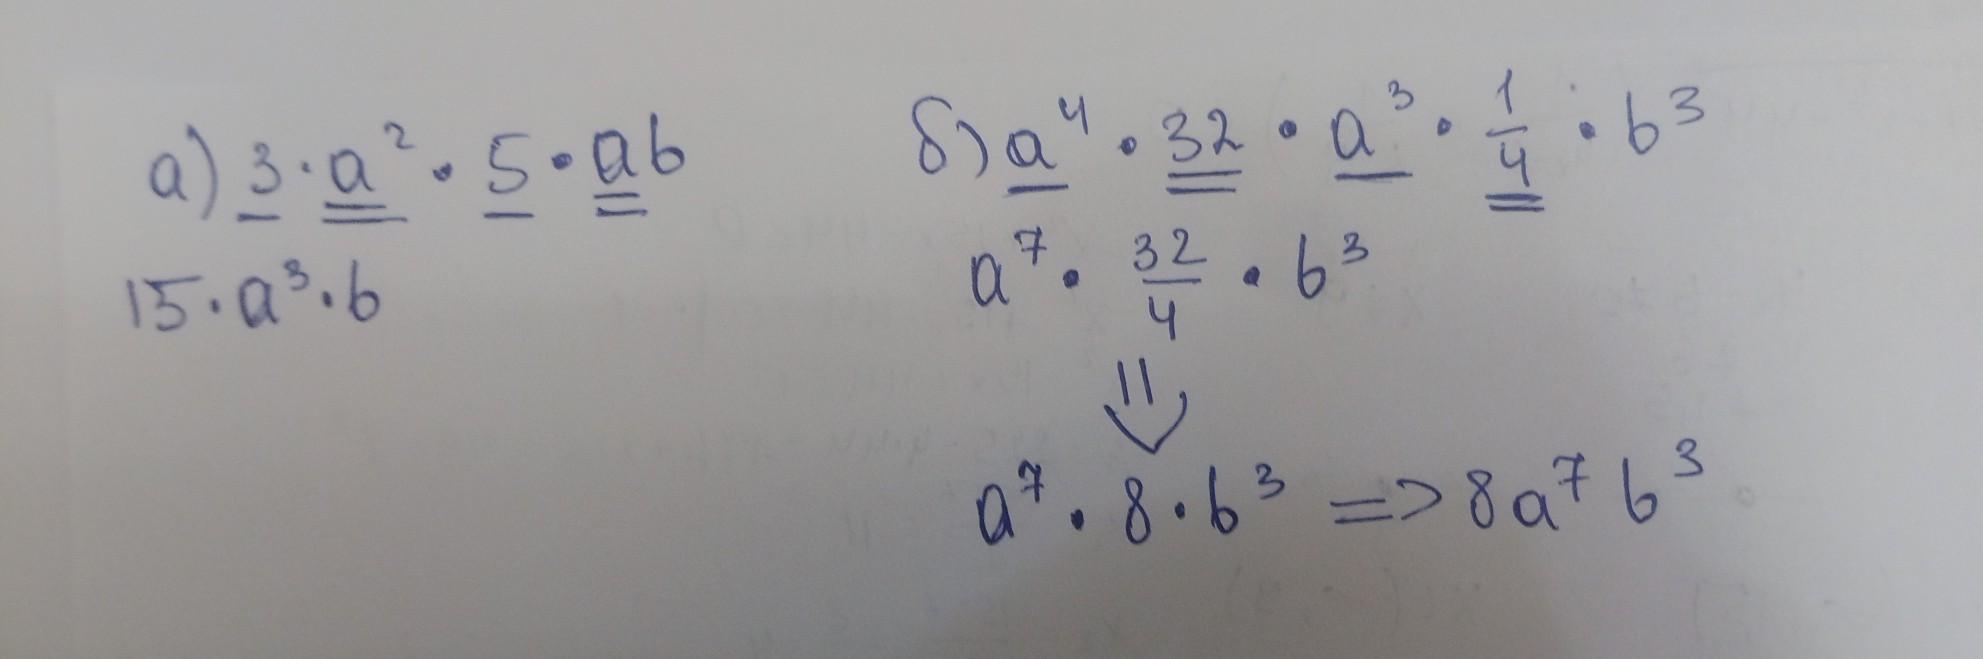 а) 3 · a² · 5 · ab
15 · a³ · b
б) a⁴ · 32 · a³ · 1/4 · b³
a⁷ · 32/4 · b³
⇓
a⁷ · 8 · b³ => 8a⁷b³